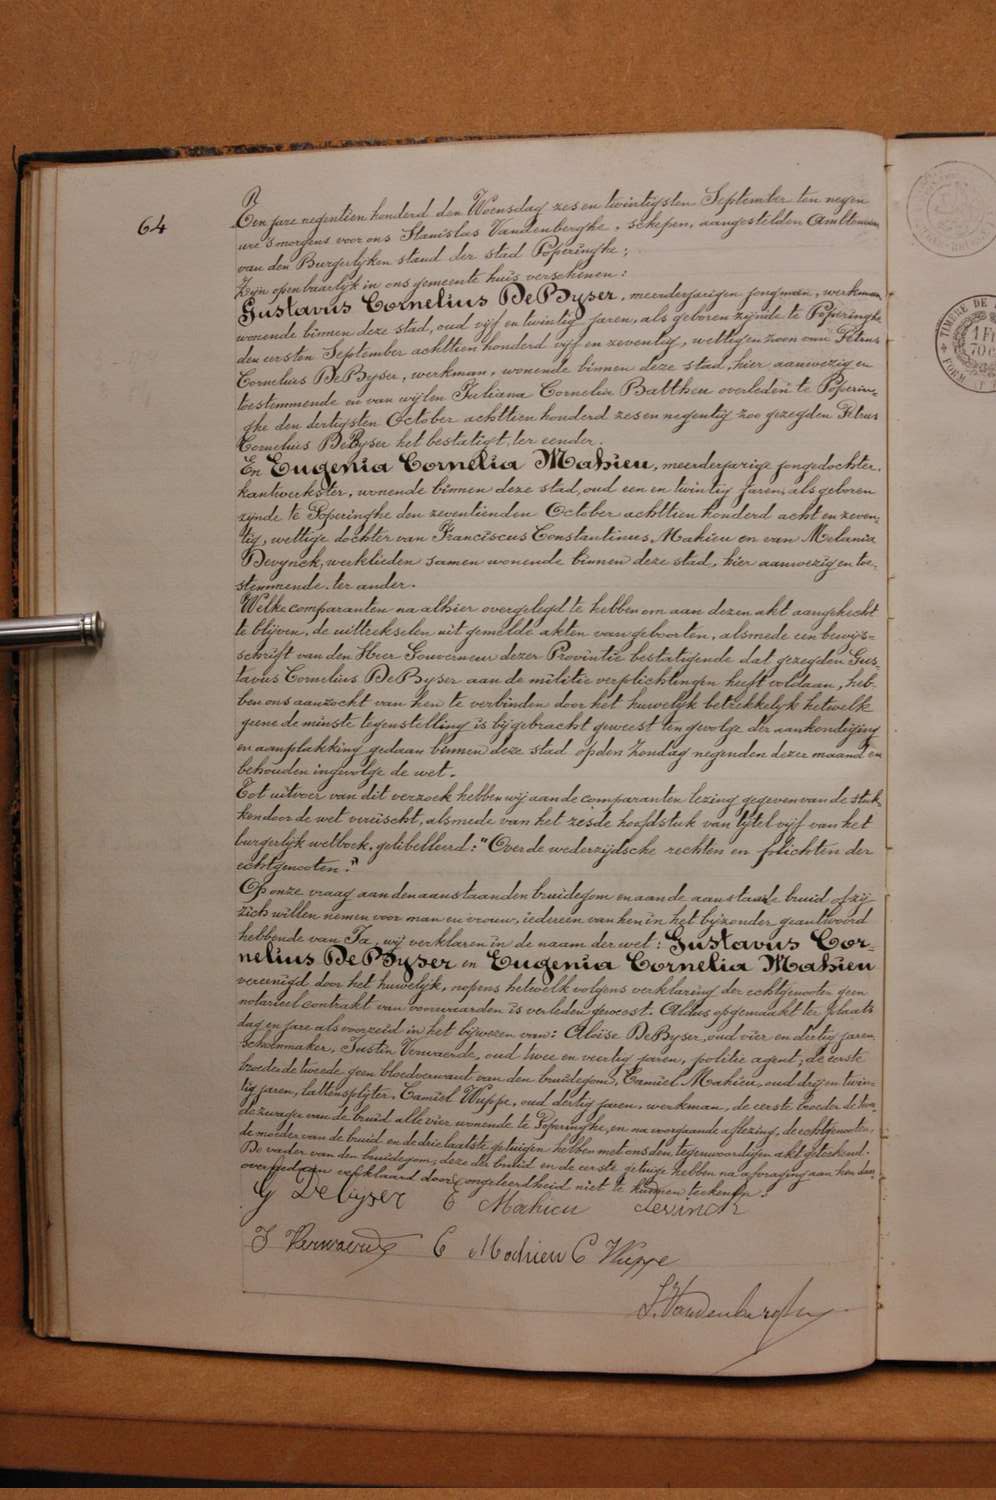 64
R
Ten jare negentien honderd den Woensdag zes en twintigsten September ten negen
ure 's morgens voor ons Stanislas Vandenberghe, schepen, aangestelden Ambtenaar
van den Burgerlyken stand der stad Poperinghe;
Zyn openbaarlyk in ons gemeente huis verschenen:
Gustavus Cornelius DeByser, meerderjarigen jongman, werkman,
wonende binnen deze stad, oud vyf en twintig jaren, als geboren zynde te Poperinghe
den eersten September achttien honderd vyf en zeventig, wettigen zoon van Petrus
Cornelius DeByser, werkman, wonende binnen deze stad, hier aanwezig en
toestemmende en van wylen Juliana Cornelia Battheu overleden te Poperin-
ghe den dertigsten October achttien honderd zes en negentig zoo gezegden Petrus
Cornelius DeByser het bestatigt, ter eender.
En Eugenia Cornelia Mahieu, meerderjarige jongedochter,
kantwerkster, wonende binnen deze stad, oud een en twintig jaren, als geboren
zynde te Poperinghe den zeventienden October achttien honderd acht en zeven-
tig, wettige dochter van Franciscus Constantinus Mahieu en van Melania
Devynck, werklieden samen wonende binnen deze stad, hier aanwezig en toe-
stemmende. ter ander.
Welke comparanten na alhier overgelegd te hebben om aan dezen akt aangehecht
te blyven, de uittrekselen uit gemelde akten van geboorten, alsmede een bewys-
schrift van den Heer Gouverneur dezer Provintie bestatigende dat gezegden Gus-
tavus Cornelius DeByser aan de militie verplichtingen heeft voldaan, heb-
ben ons aanzocht van hen te verbinden door het huwelyk betrekkelyk hetwelk
geene de minste tegenstelling is bygebracht geweest ten gevolge der aankondiging
en aanplakking gedaan binnen deze stad op den Zondag negenden dezer maand en
behouden ingevolge de wet.
Tot uitvoer van dit verzoek hebben wy aan de comparanten lezing gegeven van de stuk-
ken door de wet vereischt, alsmede van het zesde hoofdstuk van tytel vyf van het
burgerlyk wetboek, gelibelleerd: "Over de wederzydsche rechten en plichten der
echtgenooten."
Op onze vraag aan den aanstaanden bruidegom en aan de aanstaande bruid of zy
zich willen nemen voor man en vrouw, iedereen van hen in het byzonder geantwoord
hebbende van Ja, wy verklaren in de naam der wet: Gustavus Cor-
nelius DeByser en Eugenia Cornelia Mahieu
vereenigd door het huwelyk, nopens hetwelk volgens verklaring der echtgenooten geen
notarieel contrakt van voorwaarden is verleden geweest. Aldus opgemaakt ter plaats
dag en jare als voorzeid in het bywezen van: Aloïse DeByser, oud vier en dertig jaren,
schoenmaker, Justin Verwaerde, oud twee en veertig jaren, politie agent, de eerste
broeder de tweede geen bloedverwant van den bruidegom, Camiel Mahieu, oud dry en twin-
tig jaren, lattensplyter, Camiel Wuppe, oud dertig jaren, werkman, de eerste broeder de twee-
de zwager van de bruid alle vier wonende te Poperinghe, en na voorgaande aflezing, de echtgenooten,
de moeder van de bruid en de drie laatste getuigen hebben met ons den tegenwoordigen akt geteekend.
De vader van den bruidegom, deze der bruid en de eerste getuige hebben na afvraging aan hen dien-
overgedaan verklaard door ongeleerdheid niet te kunnen teekenen.
G DeByser E Mahieu Devinck
J Verwaerde C Mahieu C Wuppe
S. Vandenberghe
TIMBRE DE
1 F
70 c
FORM